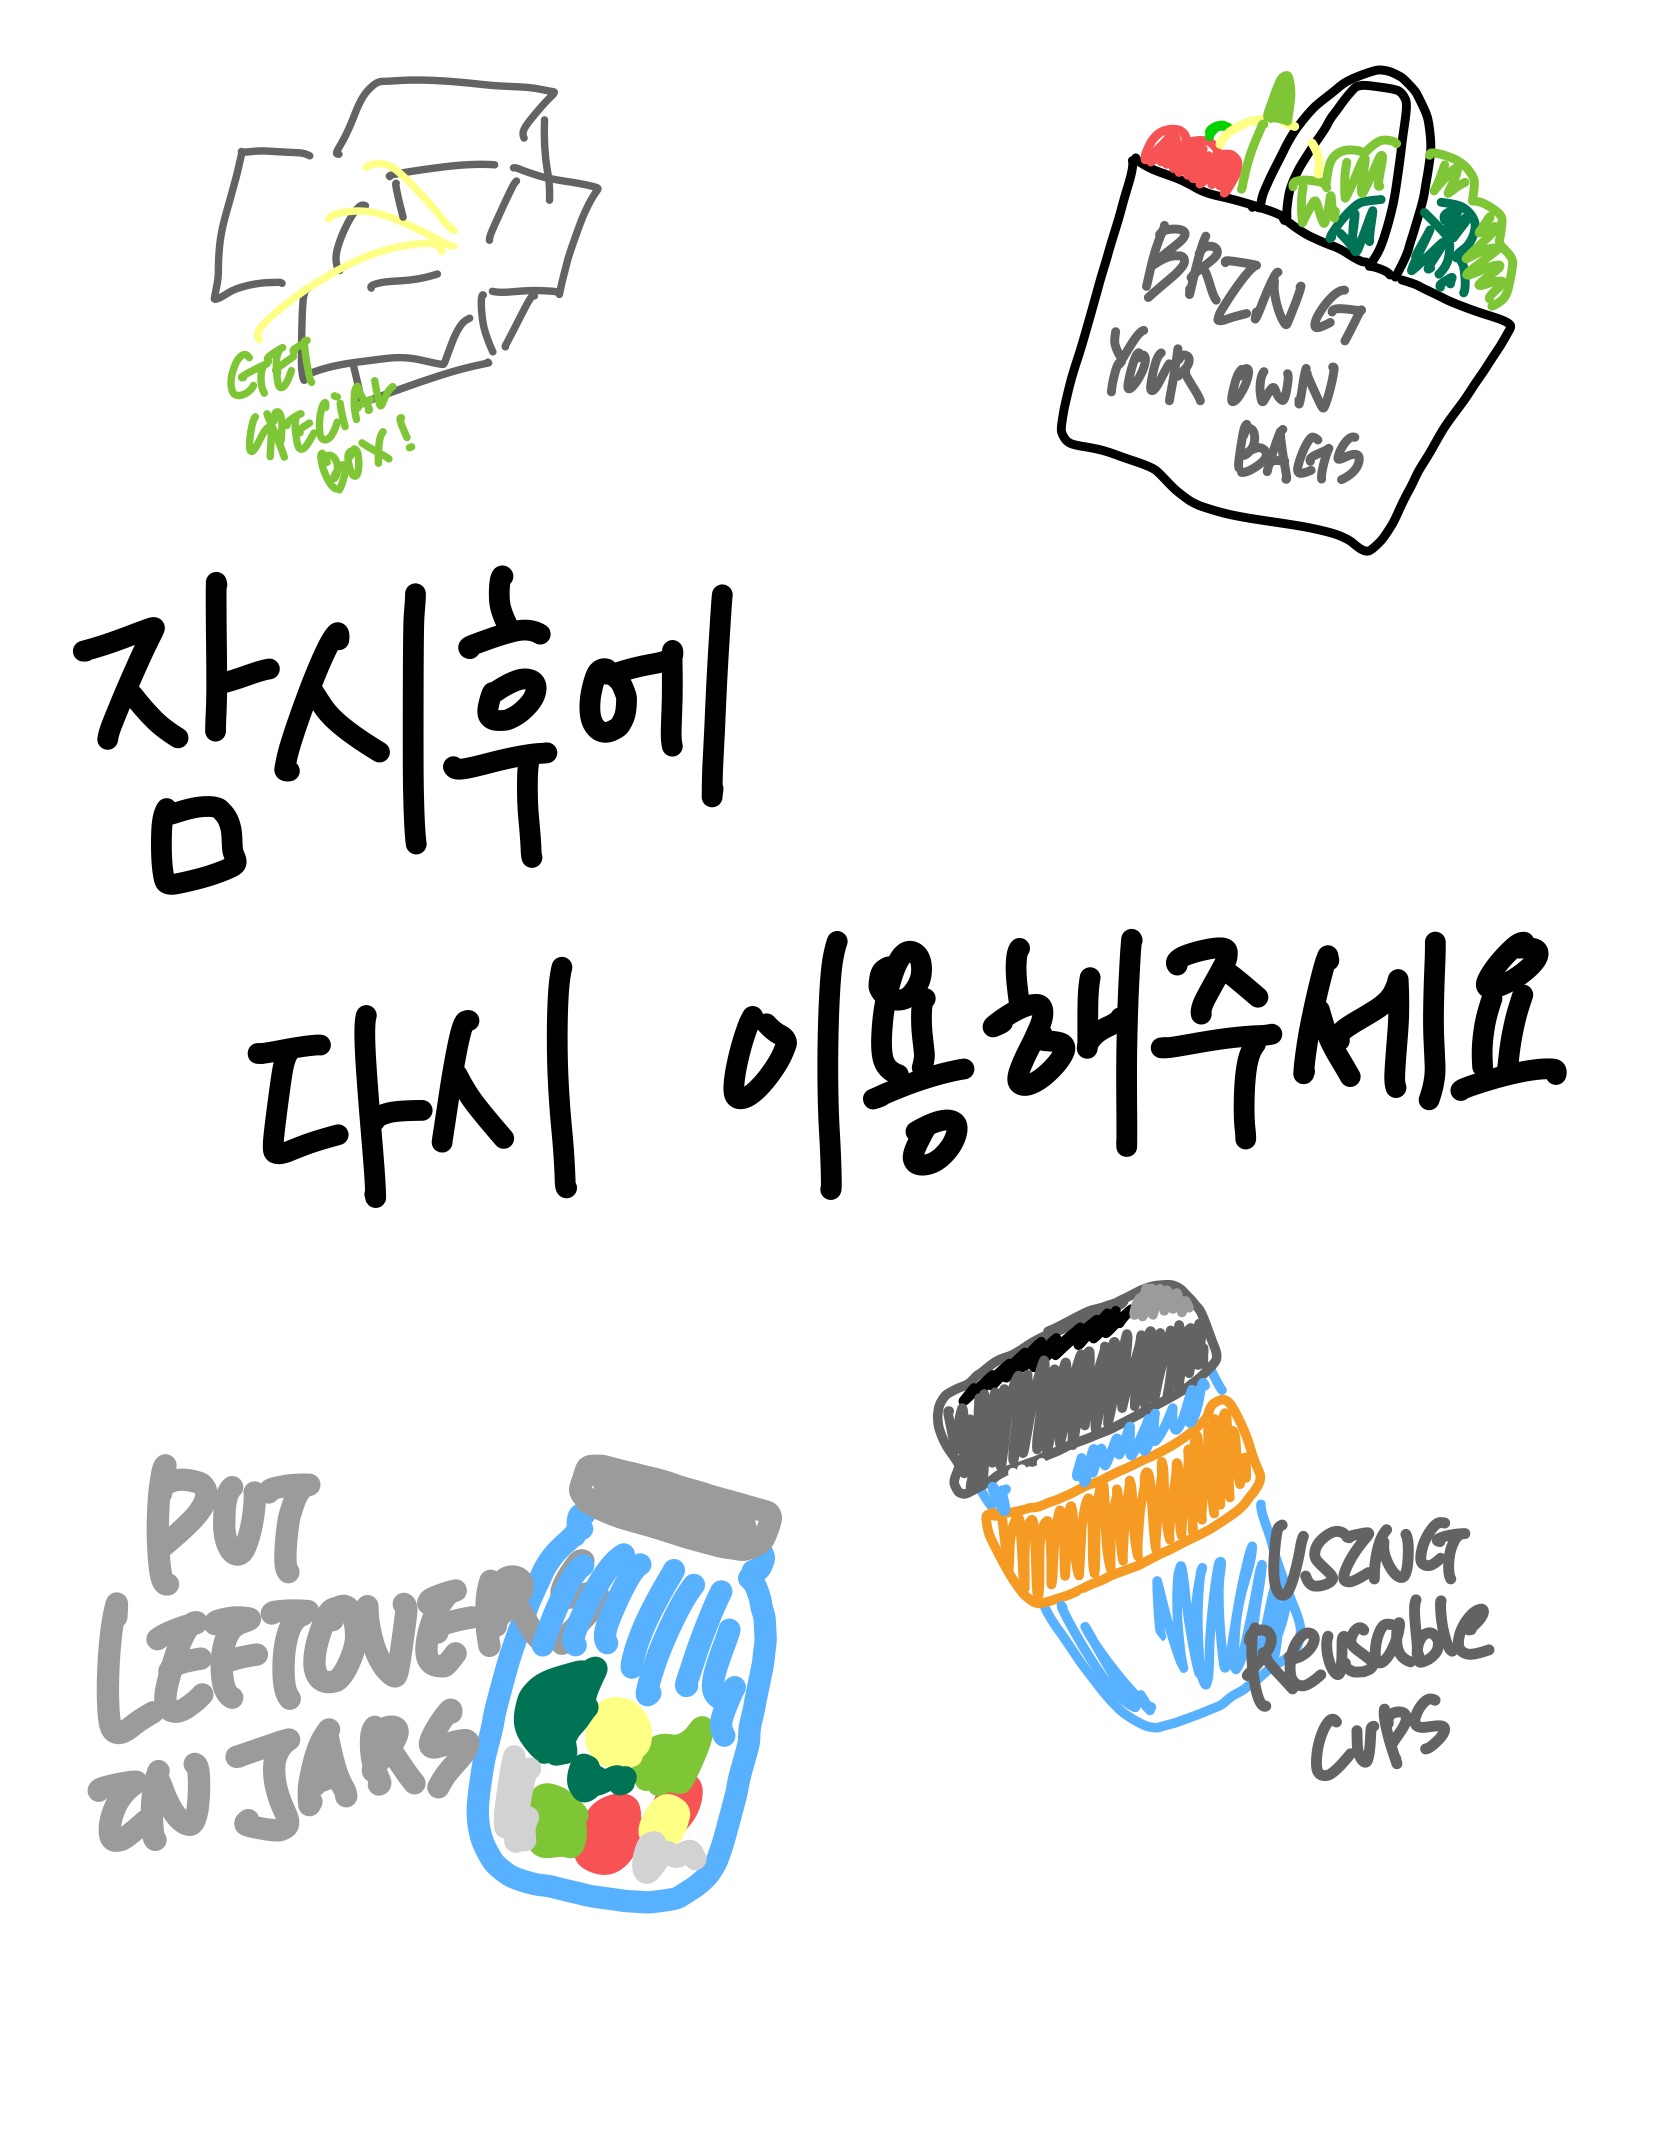 GET
SPECiAL
BOX!
BRING
YOUR OWN
BAGS
잠시후에
다시 이용해주세요
PUT
LEFTOVER
IN JARS
USING
Reusable
CUPS